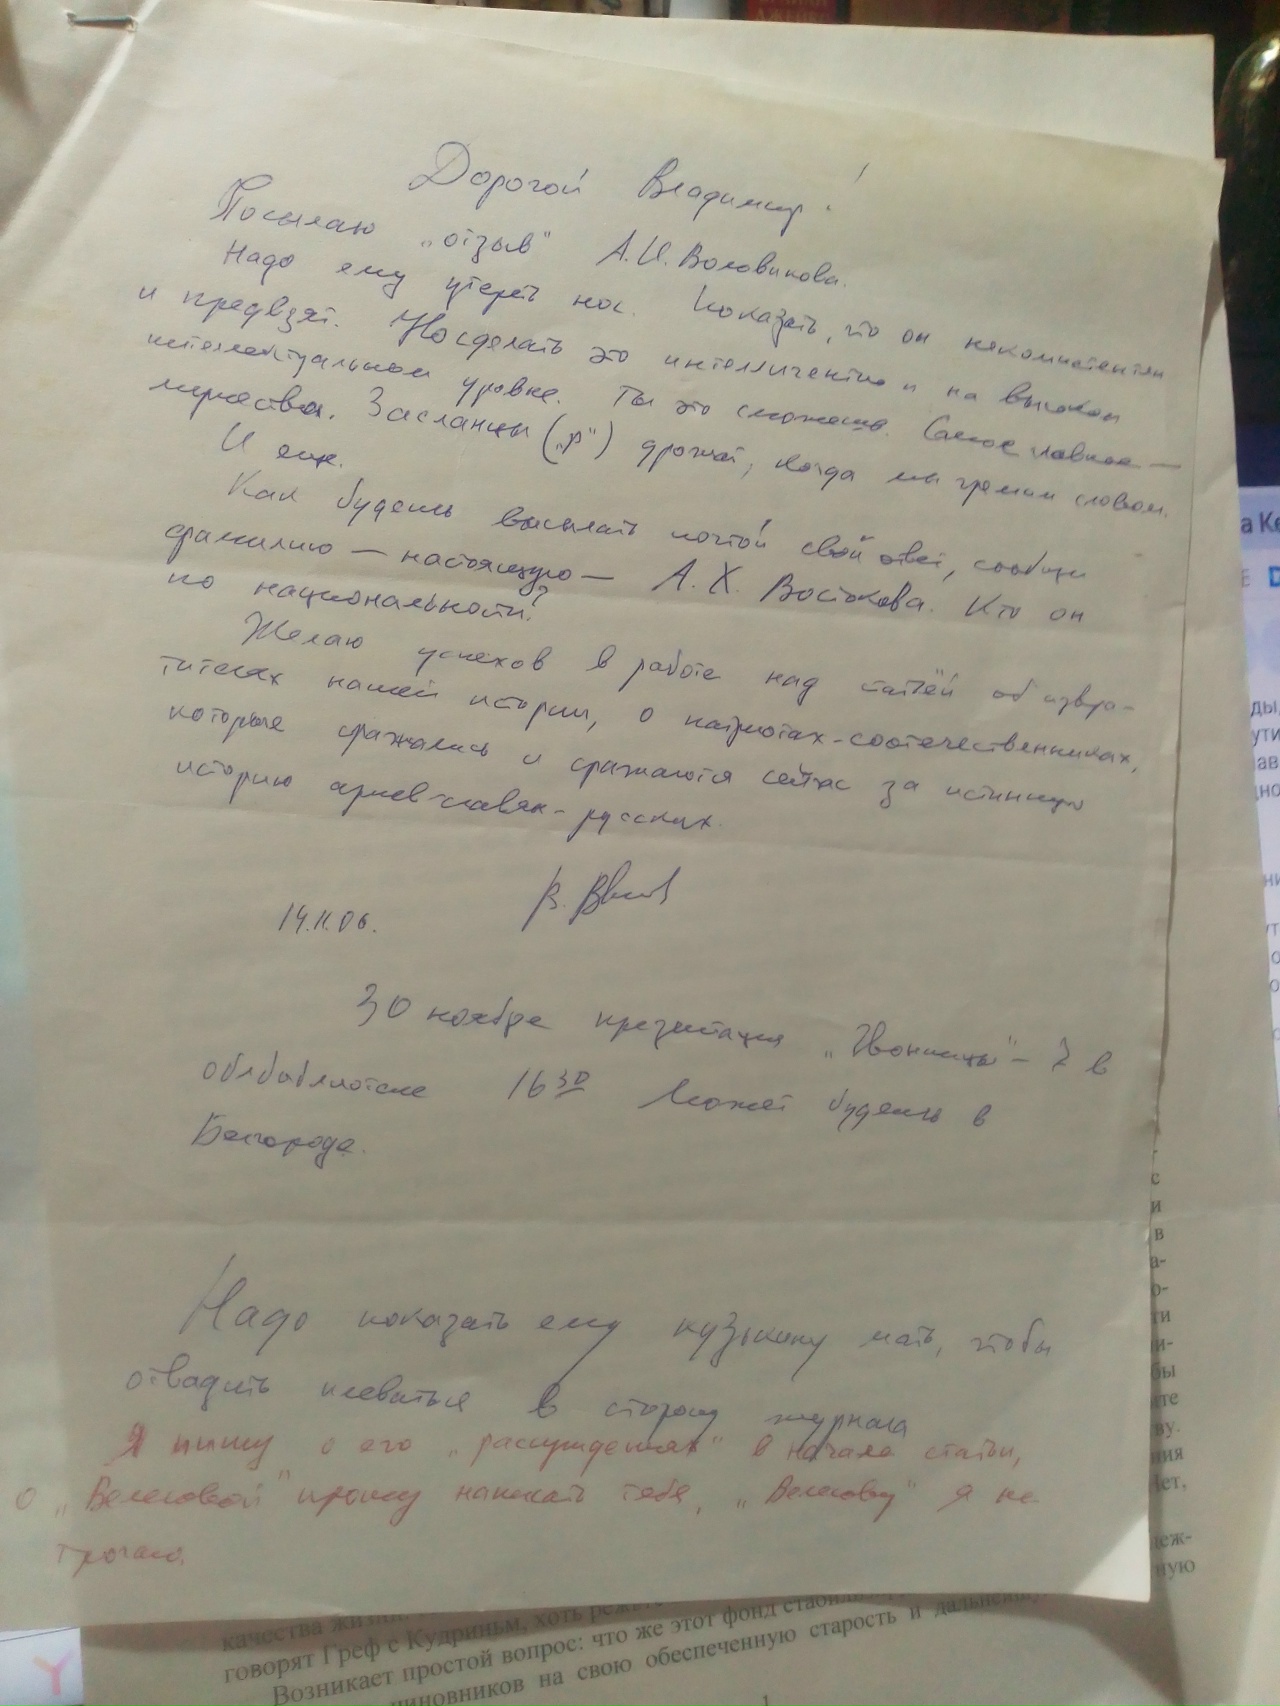 Дорогой Владимир!
Посылаю „отзыв" А.И. Воловикова.
Надо ему утереть нос. Показать, что он некомпетентен
и предвзят. Но сделать это интеллигентно и на высоком
интеллектуальном уровне. Ты это сможешь. Самое главное —
мужество. Засланцы („р") дрожат, когда мы гремим словом.
И еще.
Как будешь высылать почтой свой ответ, сообщи
фамилию — настоящую — А.Х. Востокова. Кто он
по национальности?
Желаю успехов в работе над статьёй об извра-
тителях нашей истории, о патриотах-соотечественниках,
которые сражались и сражаются сейчас за истинную
историю ариев-славян-русских.
14.11.06.
30 ноября презентация „Звонницы" – 7 в
облбиблиотеке 16 30 Может будешь в
Белгороде.
Надо показать ему кузькину мать, чтобы
отвадить плеваться в сторону журнала
Я пишу о его „рассуждениях" в начале статьи,
о „Велесовой" прошу написать тебя, „Велесову" я не
трогаю.
качества жизни
говорят Греф с Кудриным, хоть режьте
Возникает простой вопрос: что же этот фонд
чиновников на свою обеспеченную старость и
1